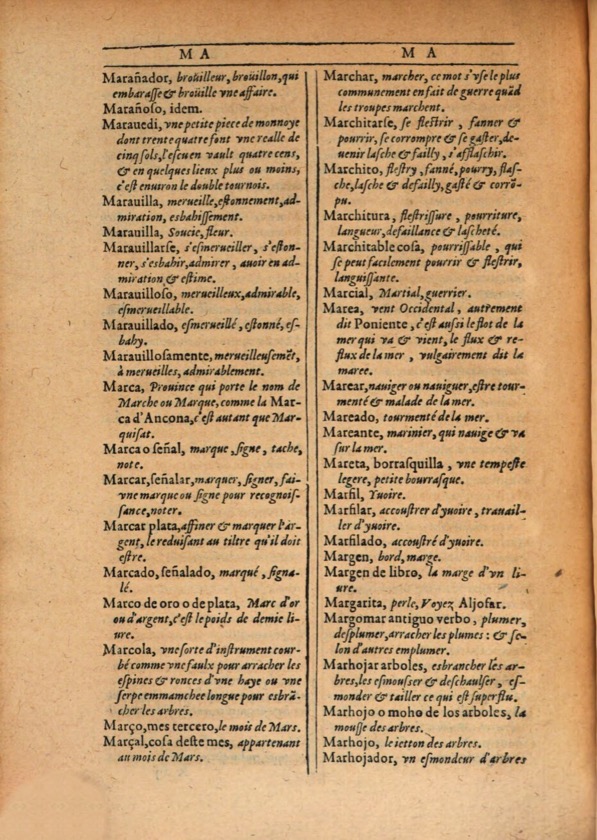 M A
Marañador, broüilleur, broüillon, qui
embarasse & broüille vne affaire.
Marañoso, idem.
Marauedi, vne petite piece de monnoye
dont trente quatre font vne realle de
cinq sols, l'escu en vault quatre cens,
& en quelques lieux plus ou moins,
c'est enuiron le double tournois.
Marauilla, merueille, estonnement, ad-
miration, esbahissement.
Marauilla, Soucie, fleur.
Marauillarse, s'esmerueiller, s'eston-
ner, s'esbahir, admirer, auoir en ad-
miration & estime.
Marauilloso, merueilleux, admirable,
esmerueillable.
Marauillado, esmerueillé, estonné, es-
bahy.
Marauillosamente, merueilleusemēt,
à merueilles, admirablement.
Marca, Prouince qui porte le nom de
Marche ou Marque, comme la Mar-
ca d'Ancona, c'est autant que Mar-
quisat.
Marca o señal, marque, signe, tache,
note.
Marcar, señalar, marquer, signer, fai-
vne marque ou signe pour recognois-
sance, noter.
Marcar plata, affiner & marquer l'ar-
gent, le reduisant au tiltre qu'il doit
estre.
Marcado, señalado, marqué, signa-
lé.
Marco de oro o de plata, Marc d'or
ou d'argent, c'est le poids de demie li-
ure.
Marcola, vne sorte d'instrument cour-
bé comme vne faulx pour arracher les
espines & ronces d'vne haye ou vne
serpe emmanchee longue pour esbrā-
cher les arbres.
Março, mes tercero, le mois de Mars.
Marçal, cosa deste mes, appartenant
au mois de Mars.
M A
Marchar, marcher, ce mot s'vse le plus
communement en fait de guerre quād
les troupes marchent.
Marchitarse, se flestrir, fanner &
pourrir, se corrompre & se gaster, de-
uenir lasche & failly, s'afflaschir.
Marchito, flestry, fanné, pourry, flas-
che, lasche & defailly, gasté & corrō-
pu.
Marchitura, flestrissure, pourriture,
langueur, defaillance & lascheté.
Marchitable cosa, pourrissable, qui
se peut facilement pourrir & flestrir,
languissante.
Marcial, Martial, guerrier.
Marea, vent Occidental, autrement
dit Poniente, c'est aussi le flot de la
mer qui va & vient, le flux & re-
flux de la mer, vulgairement dit la
maree.
Marear, nauiger ou nauiguer, estre tour-
menté & malade de la mer.
Mareado, tourmenté de la mer.
Mareante, marinier, qui nauige & va
sur la mer.
Mareta, borrasquilla, vne tempeste
legere, petite bourrasque.
Marfil, Yuoire.
Marfilar, accoustrer d'yuoire, trauail-
ler d'yuoire.
Marfilado, accoustré d'yuoire.
Margen, bord, marge.
Margen de libro, la marge d'vn li-
ure.
Margarita, perle, Voyez Aljofar.
Margomar antiguo verbo, plumer,
desplumer, arracher les plumes: & se-
lon d'autres emplumer.
Marhojar arboles, esbrancher les ar-
bres, les esmousser & deschausser, es-
monder & tailler ce qui est superflu.
Marhojo o moho de los arboles, la
mousse des arbres.
Marhojo, le ietton des arbres.
Marhojador, vn esmondeur d'arbres